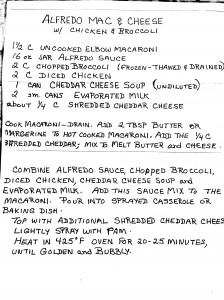 ALFREDO MAC & CHEESE
W/ CHICKEN & BROCCOLI
1½ C UNCOOKED ELBOW MACARONI
16 oz JAR ALFREDO SAUCE
2 C CHOPPED BROCCOLI (FROZEN-THAWED & DRAINED)
2 C DICED CHICKEN
1 CAN CHEDDAR CHEESE SOUP (UNDILUTED)
2 sm CANS EVAPORATED MILK
about ¼ C SHREDDED CHEDDAR CHEESE
COOK MACARONI-DRAIN. ADD 2 TBSP BUTTER OR
MARGERINE TO HOT COOKED MACARONI. ADD THE ¼ C
SHREDDED CHEDDAR; MIX TO MELT BUTTER AND CHEESE.
COMBINE ALFREDO SAUCE, CHOPPED BROCCOLI,
DICED CHICKEN, CHEDDAR CHEESE SOUP AND
EVAPORATED MILK. ADD THIS SAUCE MIX TO THE
MACARONI. POUR INTO SPRAYED CASSEROLE OR
BAKING DISH.
TOP WITH ADDITIONAL SHREDDED CHEDDAR CHEES
LIGHTLY SPRAY WITH PAM.
HEAT IN 425°F OVEN FOR 20-25 MINUTES,
UNTIL GOLDEN AND BUBBLY.